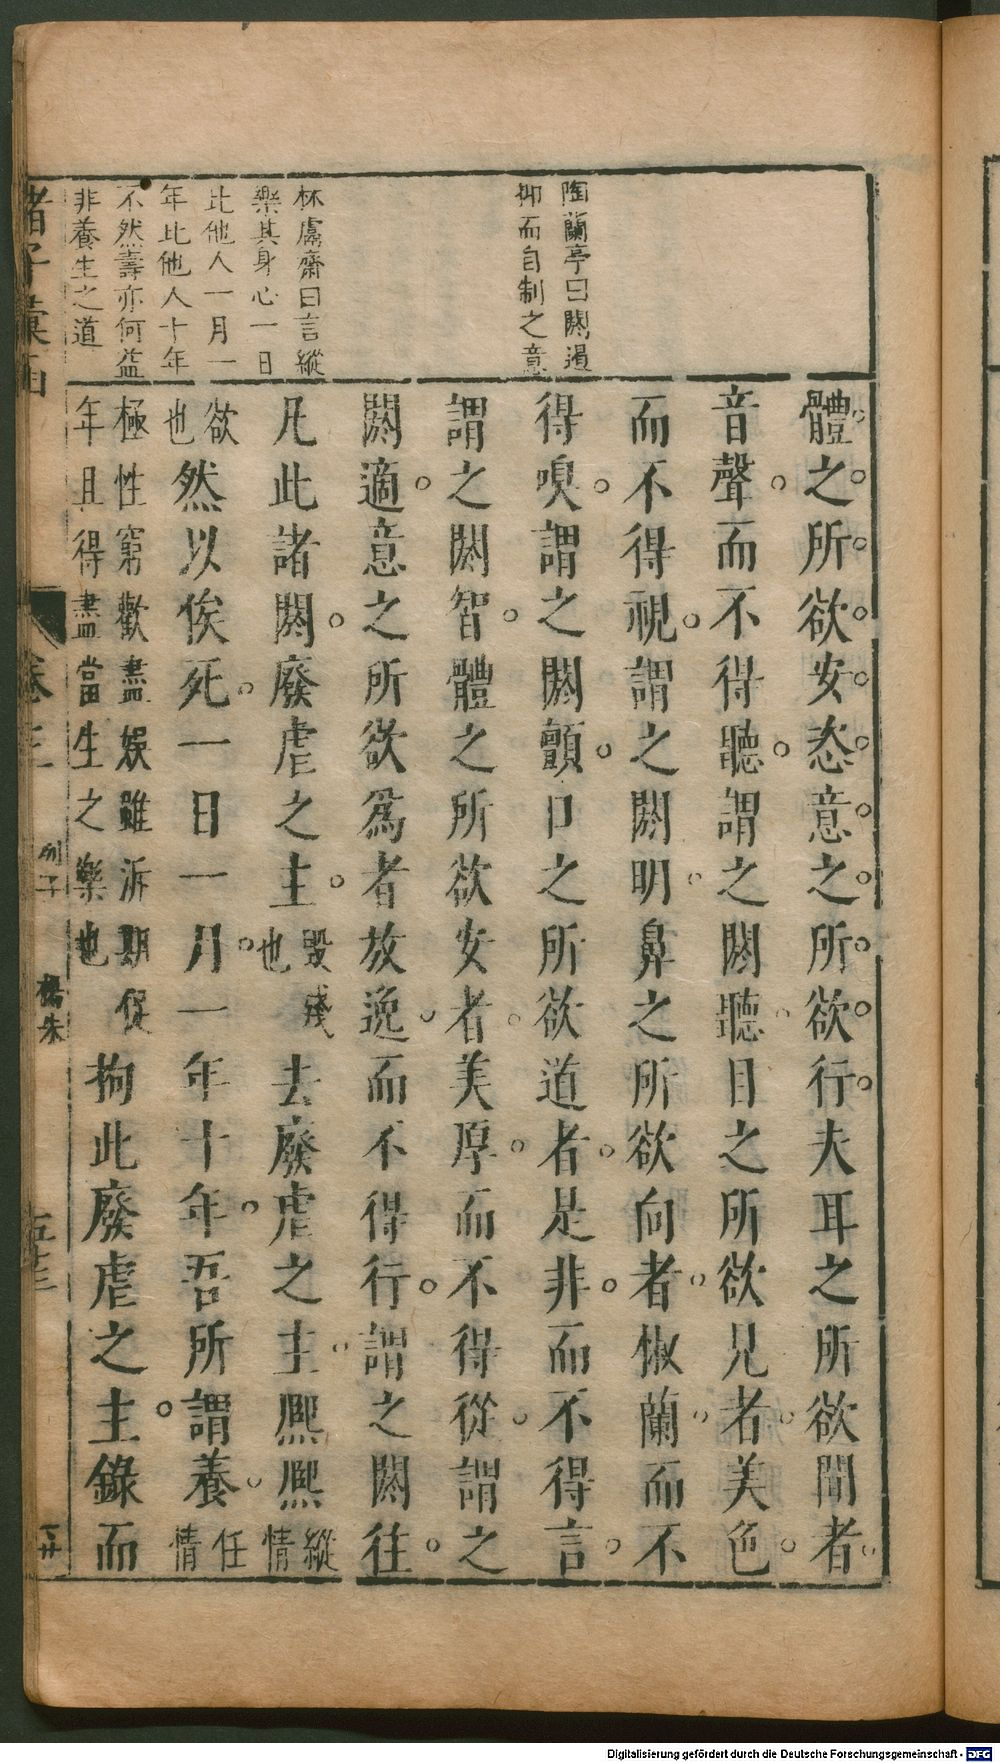 陶蘭亭曰閼遏
抑而自制之意
林鬳齋曰言縱
樂其身心一日
比他人一月一
年比他人十年
不然壽亦何益
非養生之道
體之所欲安恣意之所欲行夫耳之所欲聞者
音聲而不得聽謂之閼聽目之所欲見者美色
而不得視謂之閼明鼻之所欲向者椒蘭而不
得嗅謂之閼顫口之所欲道者是非而不得言
謂之閼智體之所欲安者美厚而不得從謂之
閼適意之所欲爲者放逸而不得行謂之閼往
凡此諸閼廢虐之主毀殘也去廢虐之主熙熙縱情
欲也然以俟死一日一月一年十年吾所謂養任情
極性窮歡盡娛雖泝期促年且得盡當生之樂也拘此廢虐之主錄而
諸子彙函
列子
楊朱